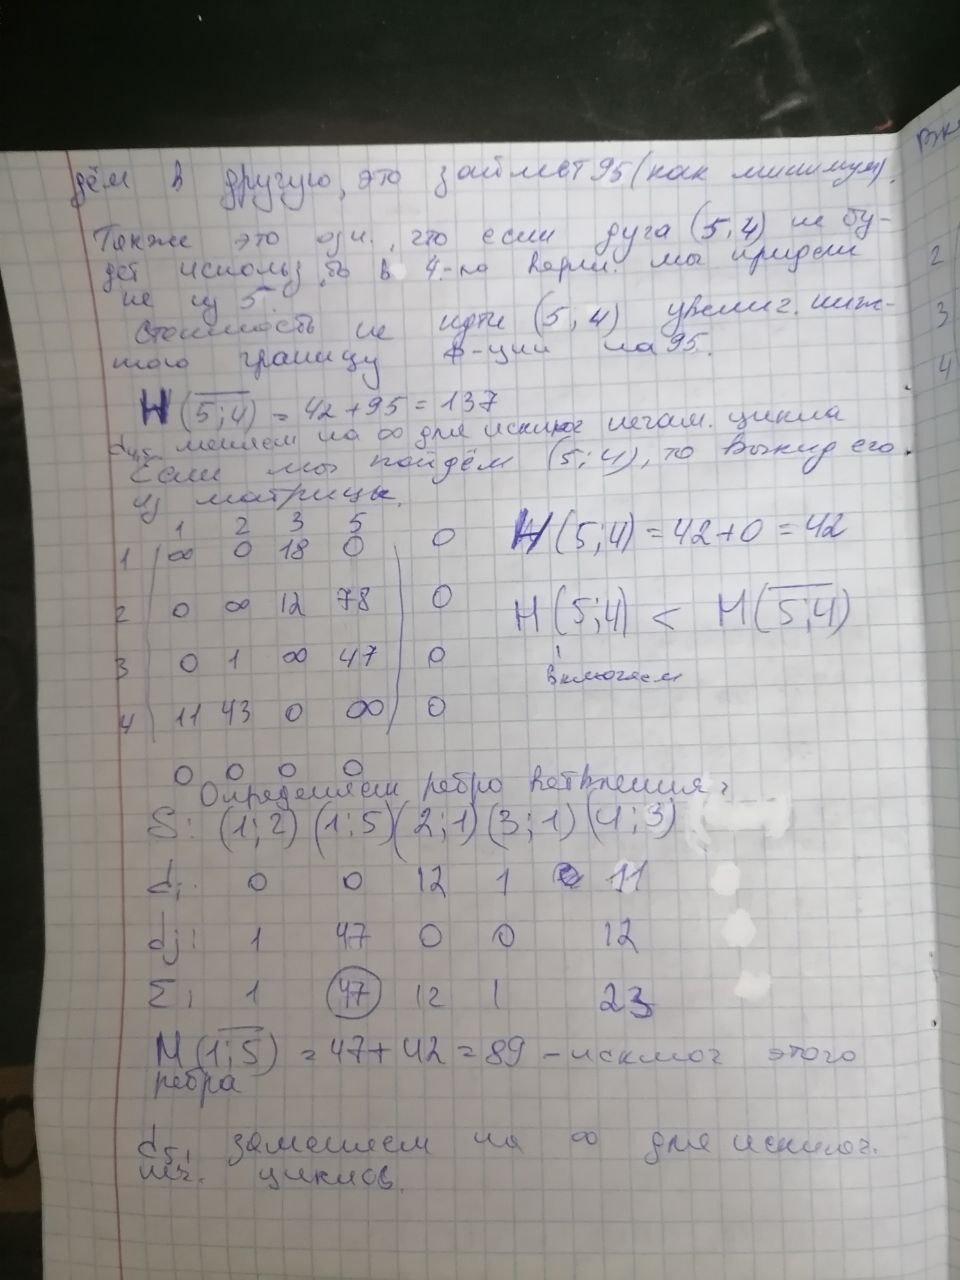 дём в другую, это займёт 95 (как минимум).
Также это озн., что если дуга (5,4) не бу-
дет использ, то в 4-ю верш. мы придём
не из 5.
Стоимость не идти (5,4) увелич. ниж-
нюю границу ф-ции на 95.
H(5;4) = 42+95 = 137
d₄,₅ меняем на ∞ для исключ негам. цикла
Если мы пойдём (5;4), то выкид его
из матрицы.
1 2 3 5
1 ∞ 0 18 0 0 H(5;4) = 42+0 = 42
2 0 ∞ 12 78 0 H(5;4) < H(5;4)
3 0 1 ∞ 47 0 включаем
4 11 43 0 ∞ 0
0 0 0 0
Определяем ребро ветвления:
S: (1;2) (1;5) (2;1) (3;1) (4;3)
di: 0 0 12 1 11
dj: 1 47 0 0 12
Σ: 1 47 12 1 23
H(1;5) = 47+42 = 89 – исключ этого
ребра
d₅,₁ заменяем на ∞ для исключ.
циклов.
2
3
4